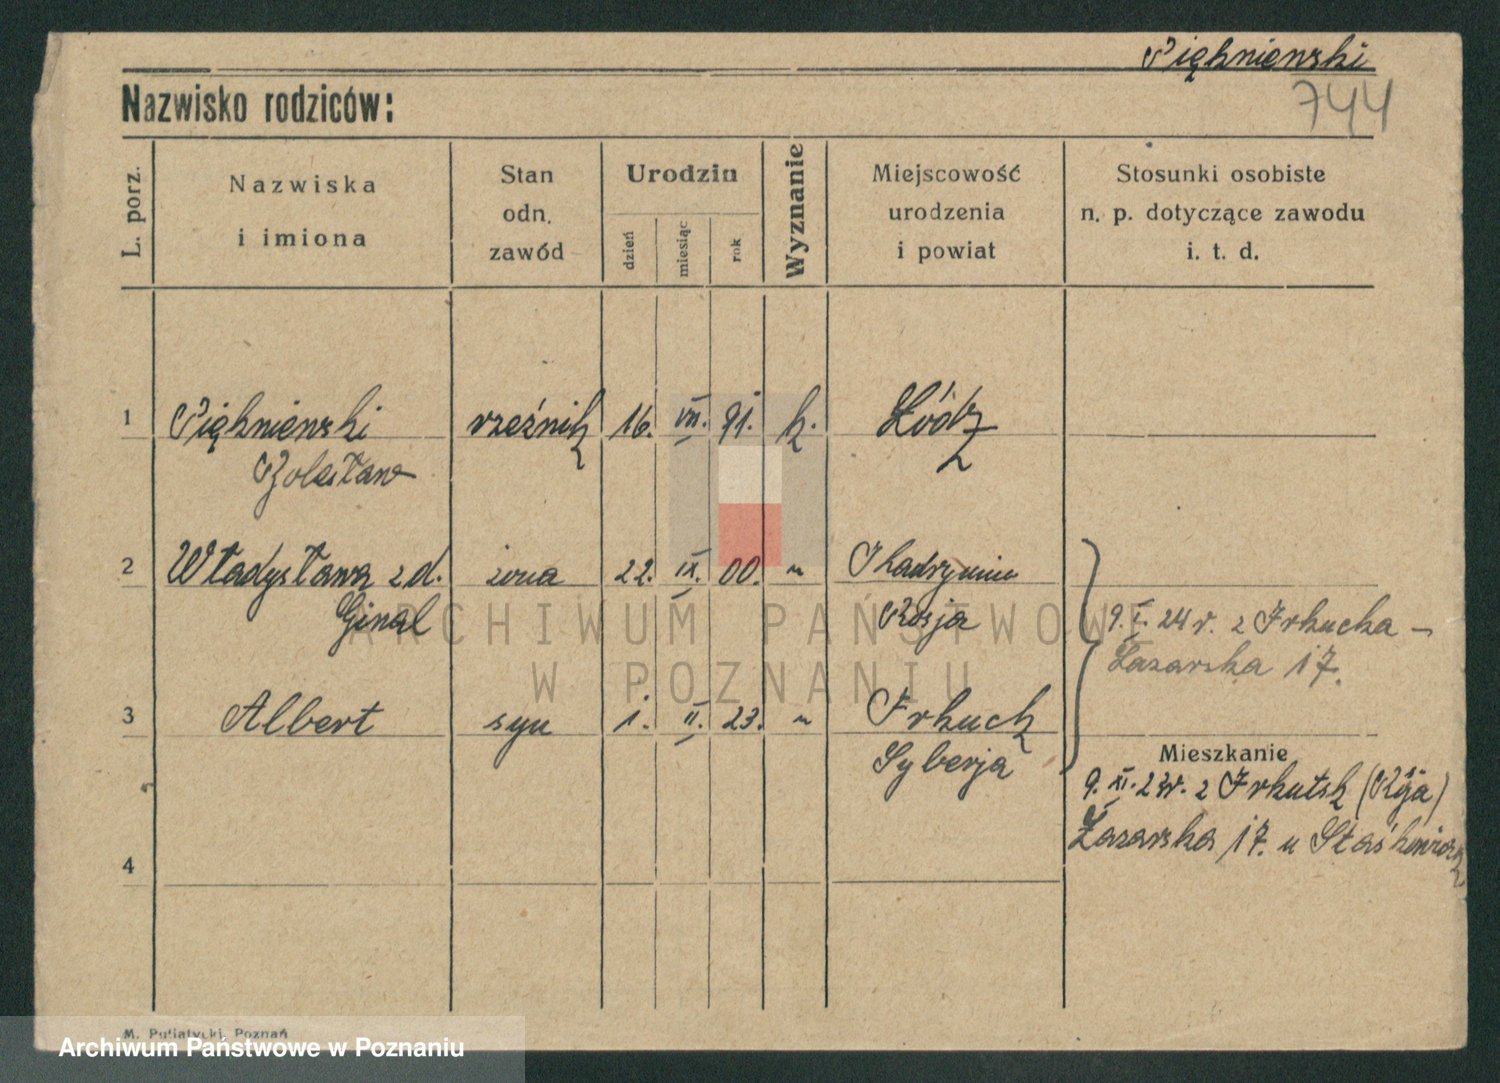 Piękniewski
Nazwisko rodziców:
744
L. porz.
Nazwiska
i imiona
Stan
odn.
zawód
Urodzin
dzień
miesiąc
rok
Wyznanie
Miejscowość
urodzenia
i powiat
Stosunki osobiste
n. p. dotyczące zawodu
i. t. d.
1 Piękniewski rzeźnik 16. VII. 91. k. Łódz
Bolesław
2 Władysława z d. żona 22. IX. 00. "
Ginal Rosja
9. I. 24 r. z Irkucka –
Łazarska 17.
3 Albert syn 1. II. 23. " Irkuck
Syberja
Mieszkanie
9. XI. 23r. z Irkutsk
Łazarska 17. u
4
M. Putiatycki, Poznań
ARCHIWUM PAŃSTWOWE
W POZNANIU
Archiwum Państwowe w Poznaniu